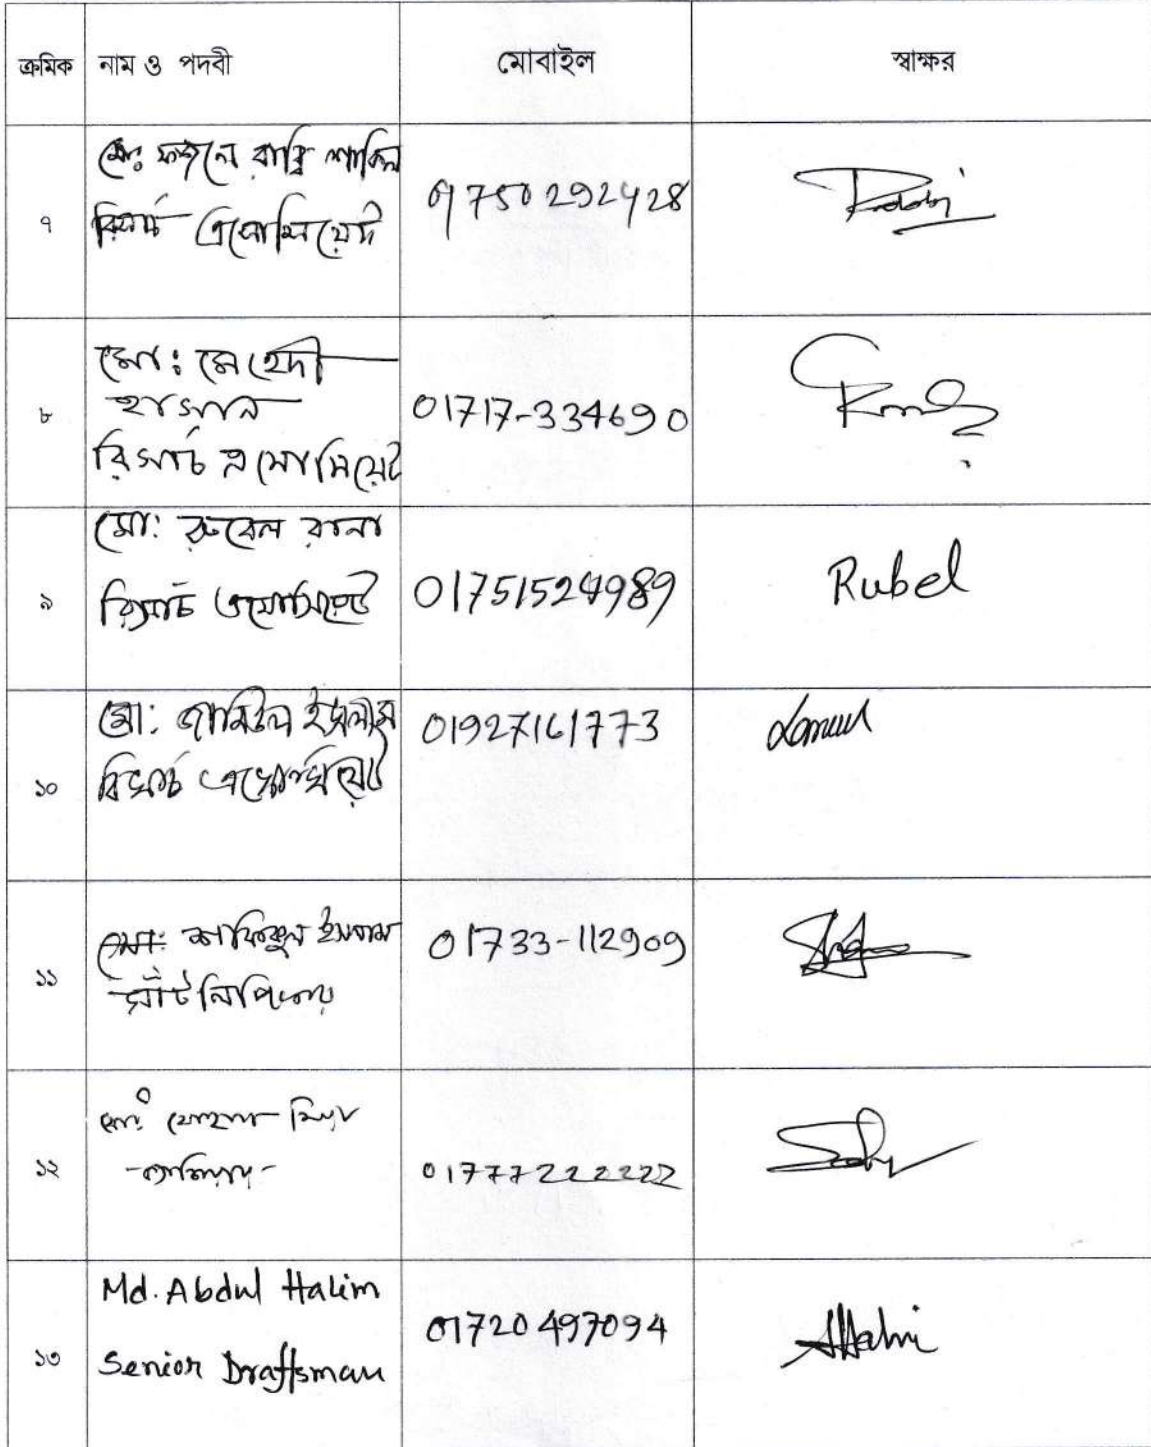 ক্রমিক নাম ও পদবী মোবাইল স্বাক্ষর
৭ মোঃ ফজলে রাব্বি শাকিল
রিসার্চ এসোসিয়েট
01750292428
৮ মো: মেহেদী
হাসান
রিসার্চ এসোসিয়েট
01717-334690
৯ মো: রুবেল রানা
রিসার্চ এসোসিয়েট
01751524989 Rubel
১০ মো: জামিউল ইসলাম
রিসার্চ এসোসিয়েট
01927161773
১১ মো: শফিকুল ইসলাম
সাঁটলিপিকার
01733-112909
১২ মোঃ সোহেল মিয়া
01777222222
১৩ Md. Abdul Halim
Senior Draftsman
01720497094 AHalim